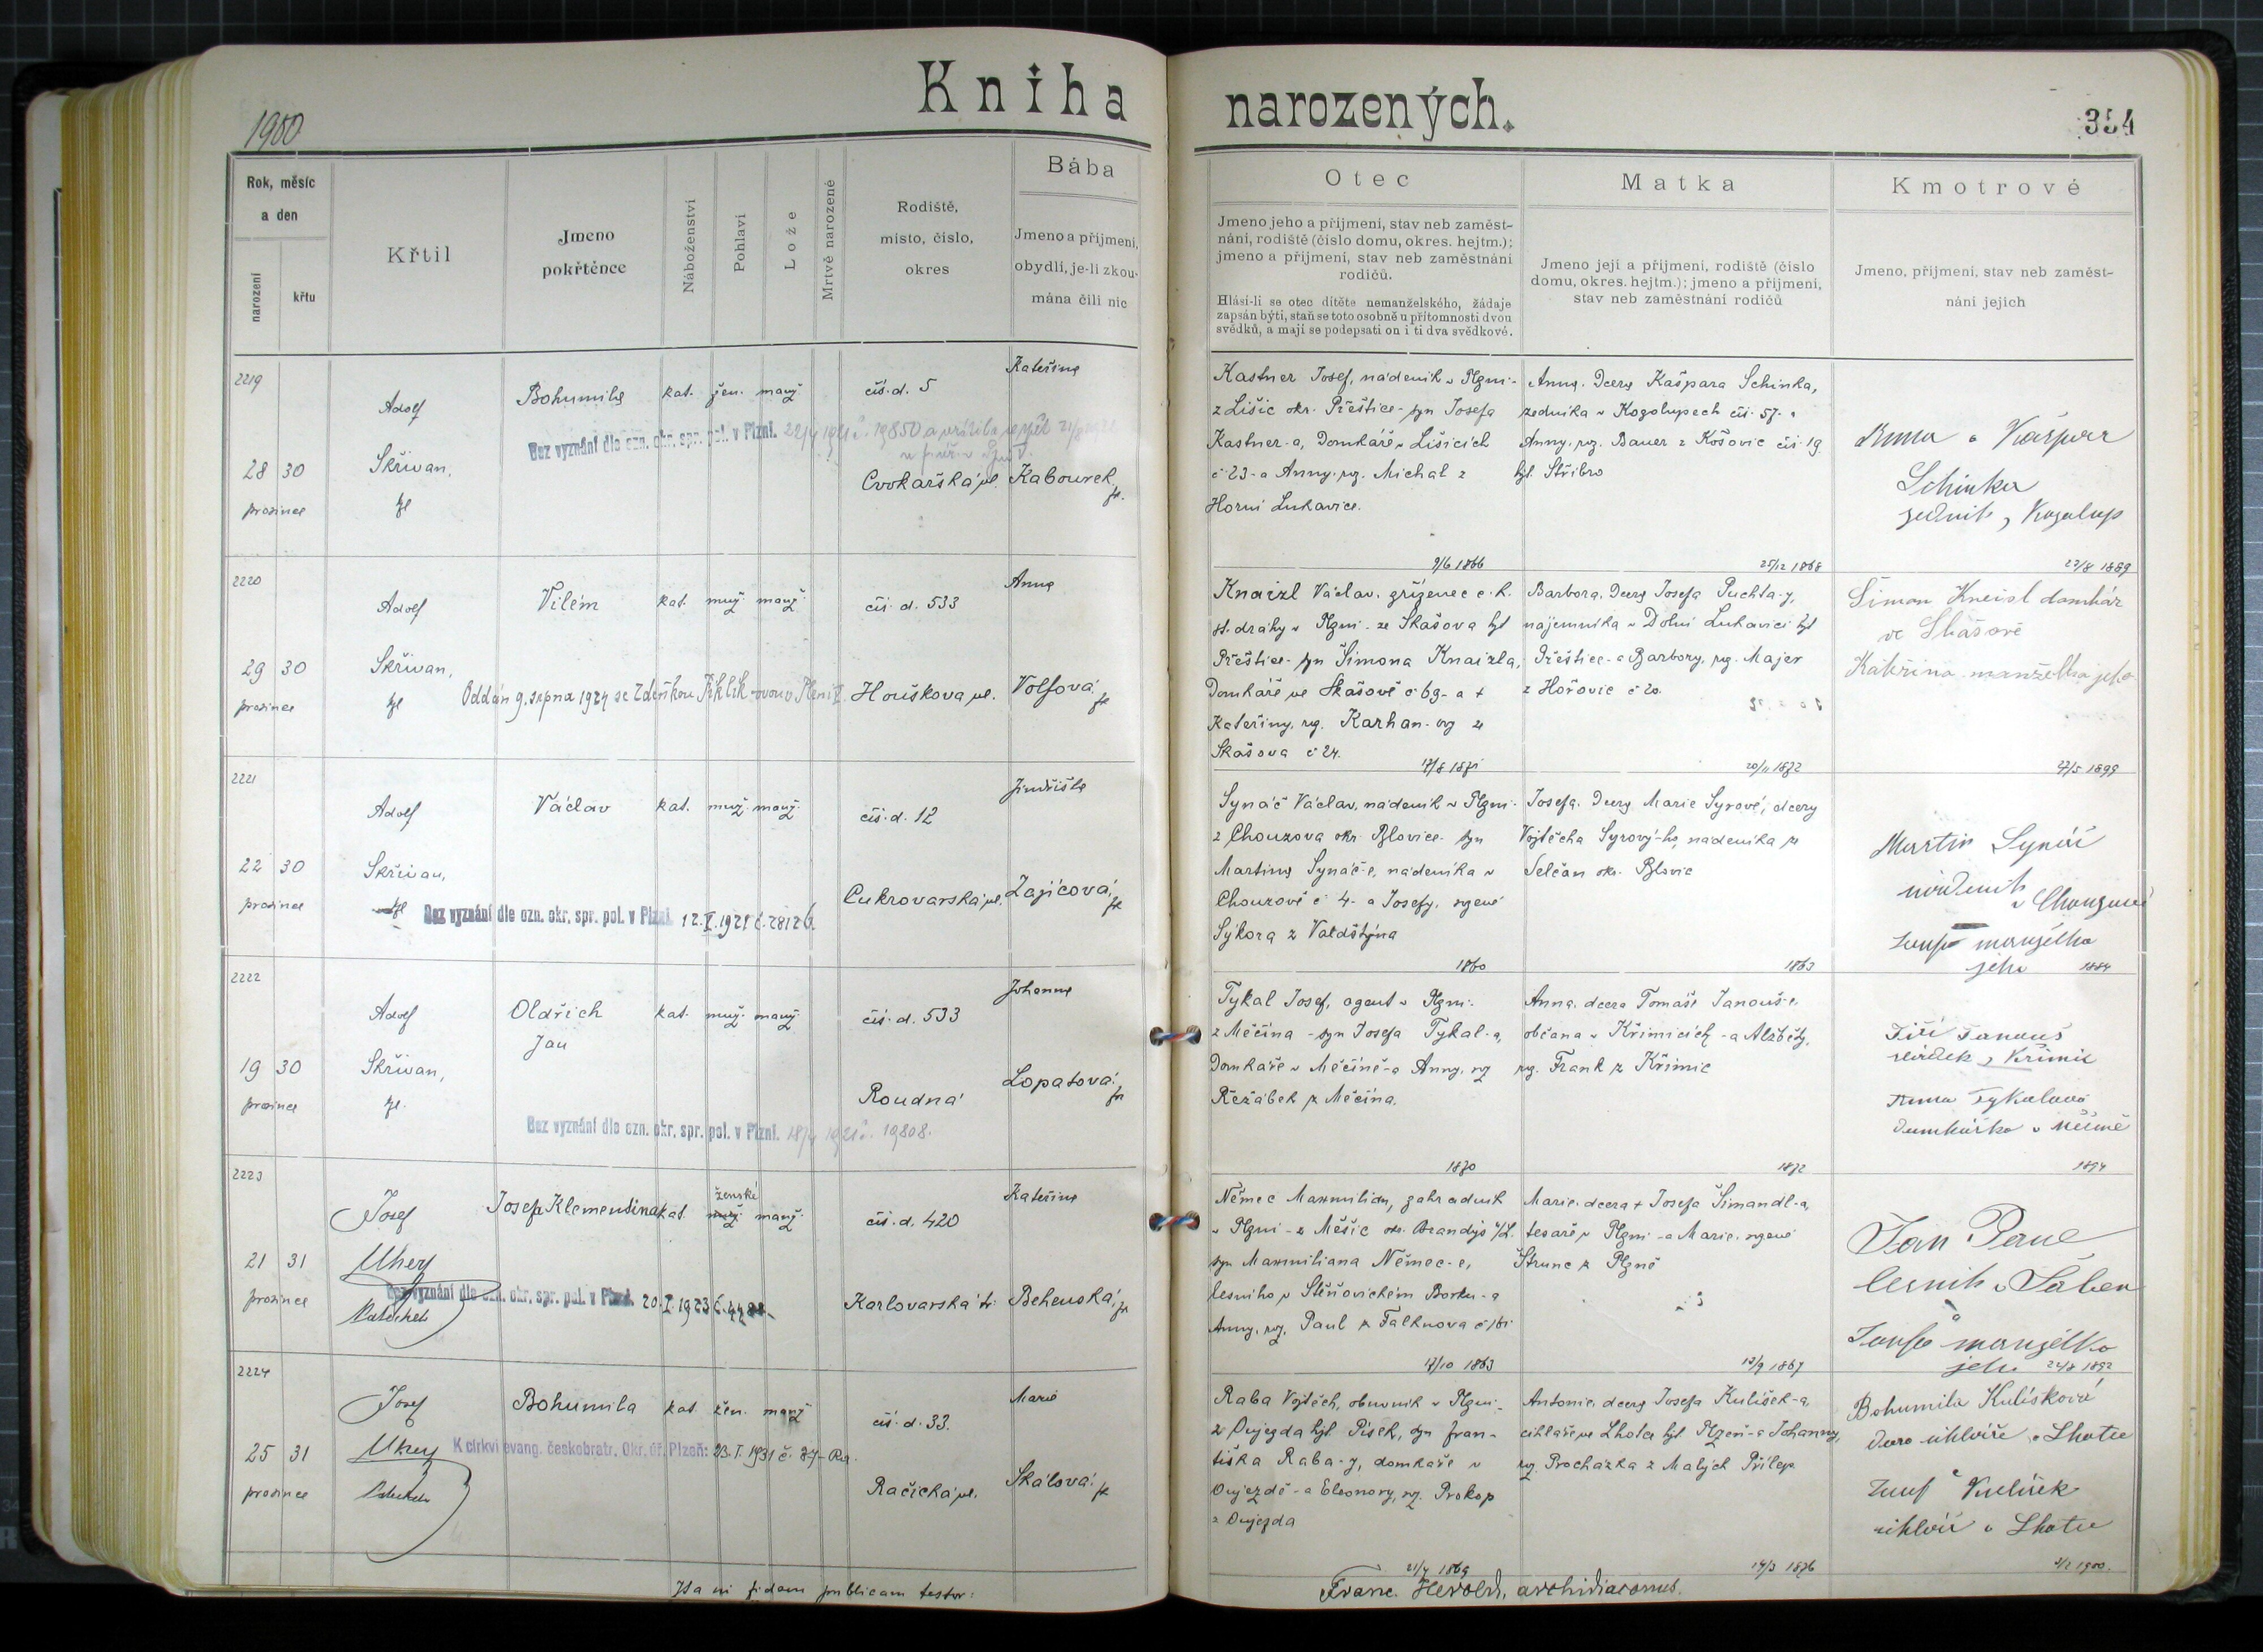 Kniha narozených.
1900
354
Rok, měsíc
a den
narození
křtu
Křtil
Jmeno
pokřtěnce
Náboženství
Pohlaví
Lože
Mrtvě narozené
Rodiště,
místo, číslo,
okres
Bába
Jmeno a příjmení,
obydlí, je-li zkou-
mána čili nic
Otec
Jmeno jeho a příjmení, stav neb zaměst-
nání, rodiště (číslo domu, okres. hejtm.);
jmeno a příjmení, stav neb zaměstnání
rodičů.
Hlásí-li se otec dítěte nemanželského, žádaje
zapsán býti, staň se toto osobně u přítomnosti dvou
svědků, a mají se podepsati on i ti dva svědkové.
Matka
Jmeno její a příjmení, rodiště (číslo
domu, okres. hejtm.); jmeno a příjmení,
stav neb zaměstnání rodičů
Kmotrové
Jmeno, příjmení, stav neb zaměst-
nání jejich
2219
28 30
prosince
Adolf
Skřivan,
Bohumila
kat. žen. manž.
Bez vyznání dle ozn. okr. spr. pol. v Plzni.
čís. d. 5
Cvokařská ul.
Kateřina
Kabourek
Kastner Josef, nádeník v Plzni-
z Lišic okr. Přeštice- syn Josefa
Kastner-a, domkáře v Lišicích
č 23- a Anny, roz. Michal z
Horní Lukavice.
9/6 1866
Anna, dcera Kašpara Schinka,
zedníka v Kozolupech čís. 57. a
Anny, roz. Bauer z Košovic čís. 19
hjt. Stříbro
25/12 1868
Anna a Kašpar
Schinka
zedník, Kozolup
23/8 1889
2220
29 30
prosince
Adolf
Skřivan,
Vilém
kat. muž. manž.
Oddán 9. srpna 1924 se Zdeňkou Fiklík-ovou v Plzni
čís. d. 533
Houškova ul.
Anna
Volfová
Knaizl Václav, zřízenec c. k.
st. dráhy v Plzni- ze Skašova hjt
Přeštice- syn Šimona Knaizla,
domkáře ve Skašově č 69- a †
Kateřiny, roz. Karhan-ovy ze
Skašova č 24.
17/8 1871
Barbora, dcera Josefa Puchta-y,
nájemníka v Dolní Lukavici hjt
Přeštice- a Barbory, roz. Majer
z Hořovic č 20.
20/11 1872
Šimon Kneisl domkár
ve Skášově
Kateřina manželka jeho
27/5 1899
2221
22 30
prosince
Adolf
Skřivan,
Václav
kat. muž. manž.
Bez vyznání dle ozn. okr. spr. pol. v Plzni 12.V.1921 č. 28126.
čís. d. 12
Cukrovarská ul.
Jindřiška
Zajícová
Synáč Václav, nádeník v Plzni-
z Chouzova okr. Blovice- syn
Martina Synáč-e, nádeníka v
Chouzově č 4- a Josefy, rozené
Sýkora z Valdštýna
1860
Josefa, dcera Marie Syrové, dcery
Vojtěcha Syrový-ho, nádeníka z
Selčan okr. Blovic
1863
Martin Synáč
nádeník
v Chouzově
Josefa manželka
jeho 1884
2222
19 30
prosince
Adolf
Skřivan,
Oldřich
Jan
kat. muž. manž.
Bez vyznání dle ozn. okr. spr. pol. v Plzni. 18/4 1921 č. 19808.
čís. d. 533
Roudná
Johanna
Lopatová
Tykal Josef, agent v Plzni-
z Měčína - syn Josefa Tykal-a,
domkáře v Měčíně- a Anny, roz
Řežábek z Měčína.
1870
Anna, dcera Tomáše Janouš-e,
občana v Křimicích - a Alžběty,
roz. Frank z Křimic
1872
Jiří Janouš
Křimic
Anna Tykalová
domkářka v Měčíně
1894
2223
21 31
prosince
Josef
Uherj
Josefa Klementina
kat. ženské manž.
Bez vyznání dle ozn. okr. spr. pol. v Plzni. 20.I.1923
čís. d. 420
Karlovarská tř.
Kateřina
Behenská
Němec Maxmilian, zahradník
v Plzni - z Měšic okr. Brandýs n/L.
syn Maxmiliana Němec-e,
lesního v Štěňovickém Borku - a
Anny, roz. Paul z Falknova
17/10 1863
Marie, dcera † Josefa Šimandl-a,
tesaře v Plzni - a Marie, rozené
Štrunc z Plzně
12/9 1867
Jan Paul
lesník v
Josefa manželka
jeho 24/8 1892
2224
25 31
prosince
Josef
Uherj
Bohumila
kat. žen. manž
K církvi evang. českobratr. Okr. úř. Plzeň: 23.I.1931 č. 87-
čís. d. 33.
Račická ul.
Marie
Skálová
Raba Vojtěch, obuvník v Plzni-
z Oujezda hjt Písek, syn Fran-
tiška Raba-y, domkáře v
Oujezdě - a Eleonory, roz. Prokop
z Oujezda
21/4 1869
Antonie, dcera Josefa Kulíšek-a,
cihláře ve Lhotce hjt Plzeň - a Johanny,
roz. Procházka z Malých Přílep
14/3 1876
Bohumila Kulíšková
dcera cihláře v Lhotce
Josef Kulíšek
cihlář v Lhotce
1900.
Ita in fidem publicam testor:
Franc. Herold, archidiaconus.